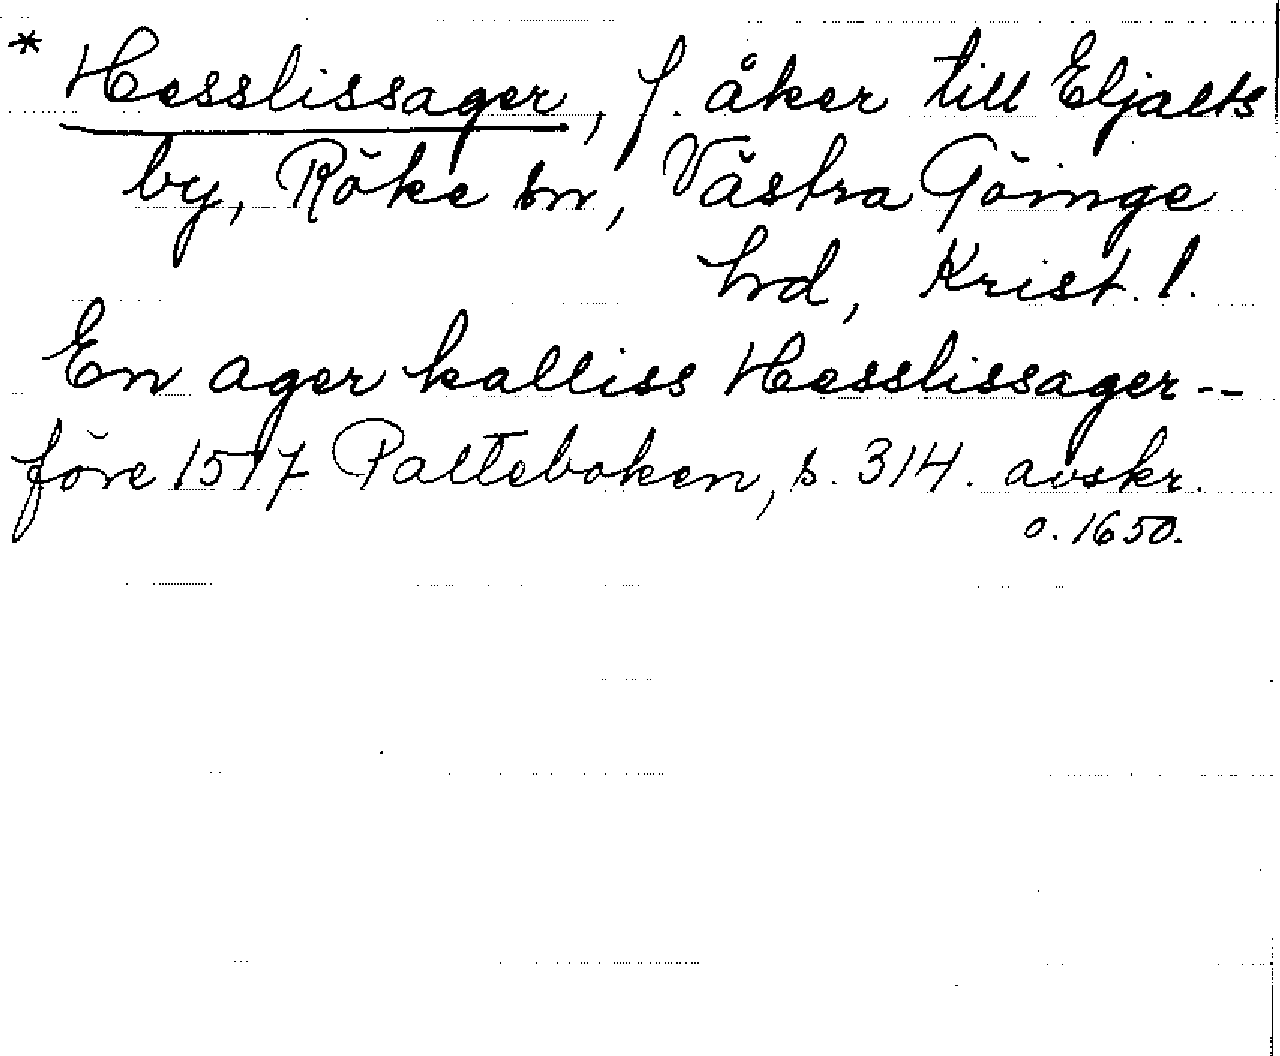 * Hesslissager, f. åker till Eljalts
by, Röke sn, Västra Göinge
hd, Krist. l.
En ager kalliss Hesslissager --
före 1517 Palteboken, s. 314. avskr.
o. 1650.